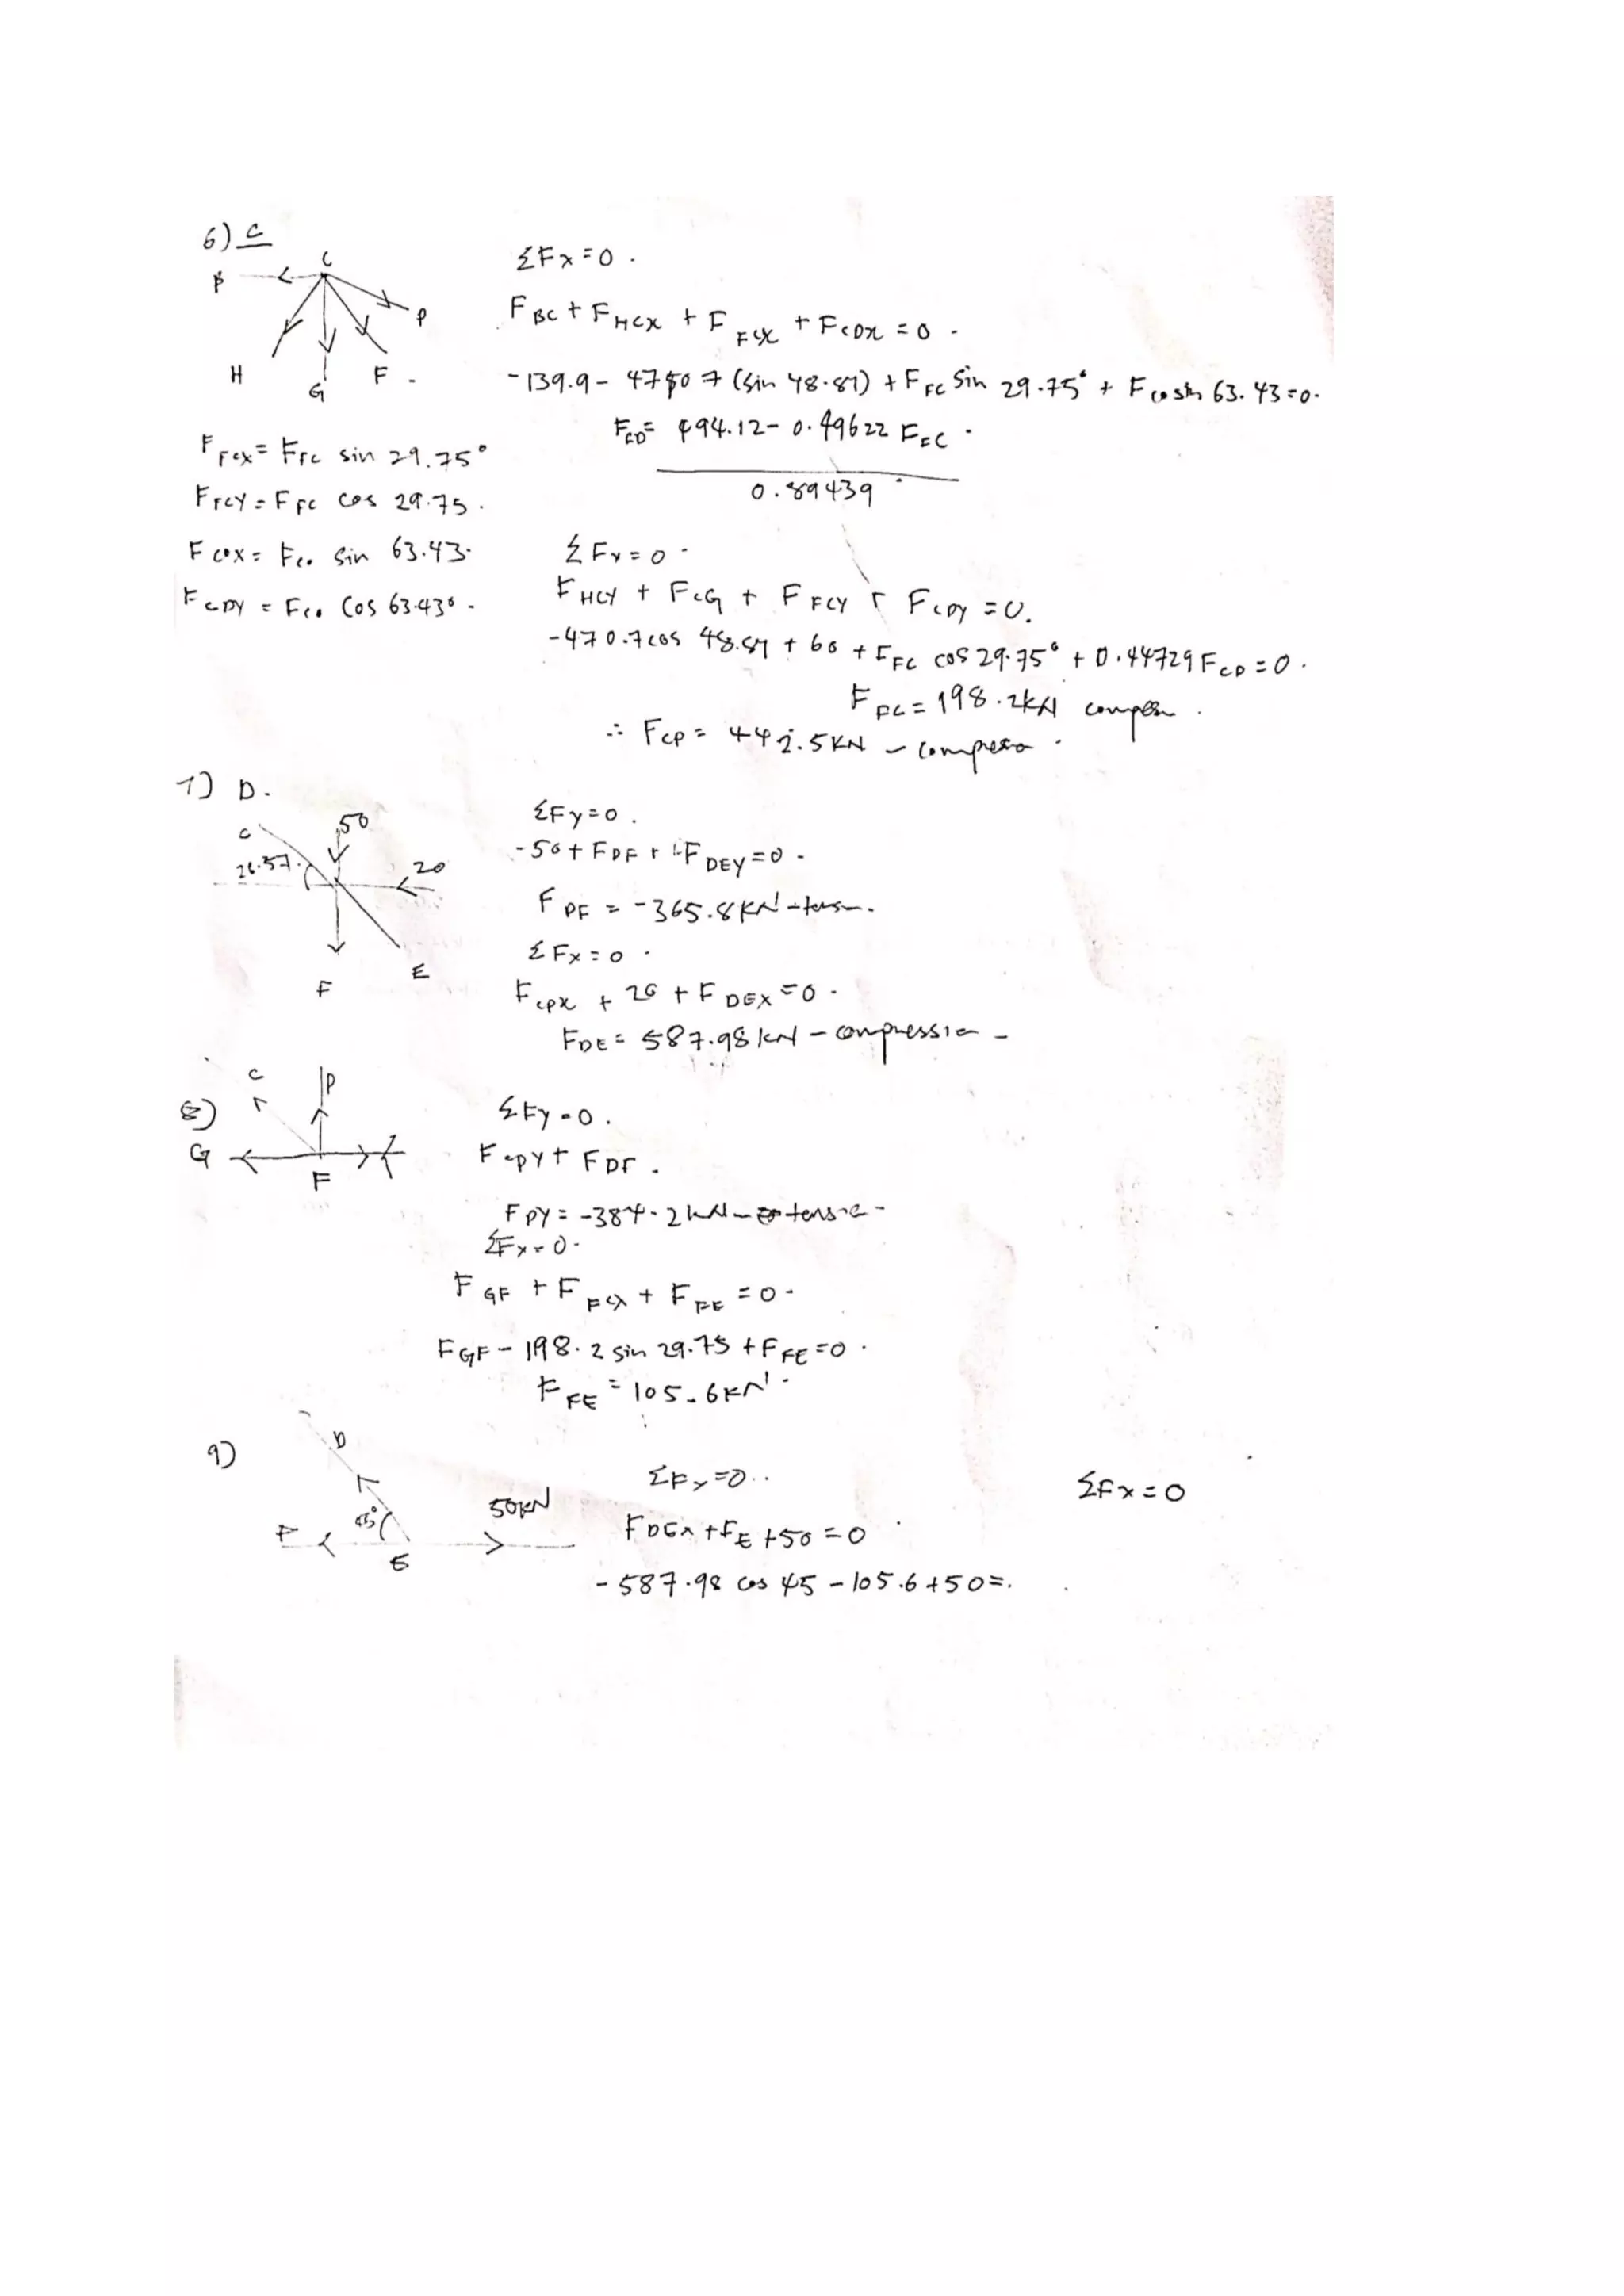 6) C
C
B
P
H
G
F .
ΣFx=0 .
F BC + F HCX + F FCX + F CDX = 0 .
-139.9 - 47507 (sin 48.81) + F FC sin 29.75° + F CD sin 63.43=0.
F CD = 494.12 - 0.49622 F FC .
0.89439
F FCX = F FC sin 29.75°
F FCY = F FC cos 29.75 .
F CDX = F CD sin 63.43.
F CDY = F CD cos 63.43° .
ΣFY=0 .
F HCY + F CG + F FCY + F CDY = 0.
-470.7 cos 48.81 + 60 + F FC cos 29.75° + 0.44729 F CD = 0 .
F FC = 198.2kN
∴ F CD = 442.5KN -
7) D .
C
50
26.57.
20
F
E
ΣFy=0 .
-50 + F DF + F DEY = 0 .
F DF = -365.8KN -
ΣFx=0 .
F CDX + 20 + F DEX = 0 .
F DE = 587.98kN - compression -
8)
C
D
G
F
ΣFy=0 .
F CDY + F DF .
F DY = -384.2kN -
ΣFx=0 .
F GF + F FCX + F FE = 0 .
F GF - 198.2 sin 29.75 + F FE = 0 .
F FE = 105.6KN .
9)
D
F
45°
E
50KN
ΣFy=0 ..
F DEX + F E + 50 = 0
- 587.98 cos 45 - 105.6 + 50 = .
ΣFx=0